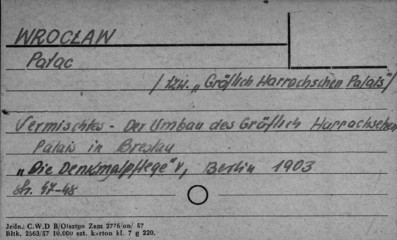 WROCŁAW
Pałac
/ tzw. „Gräflich Harrachschen Palais"/
Vermischtes - Der Umbau des Gräflich Harrachschen
Palais in Breslau
„Die Denkmalpflege" V, Berlin 1903
str. 47-48
Jedn.: C.W.D B/Olsztyn Zam 2776/on/ 57
Bltk. 2563/57 10.000 szt. karton kl. 7 g 220.